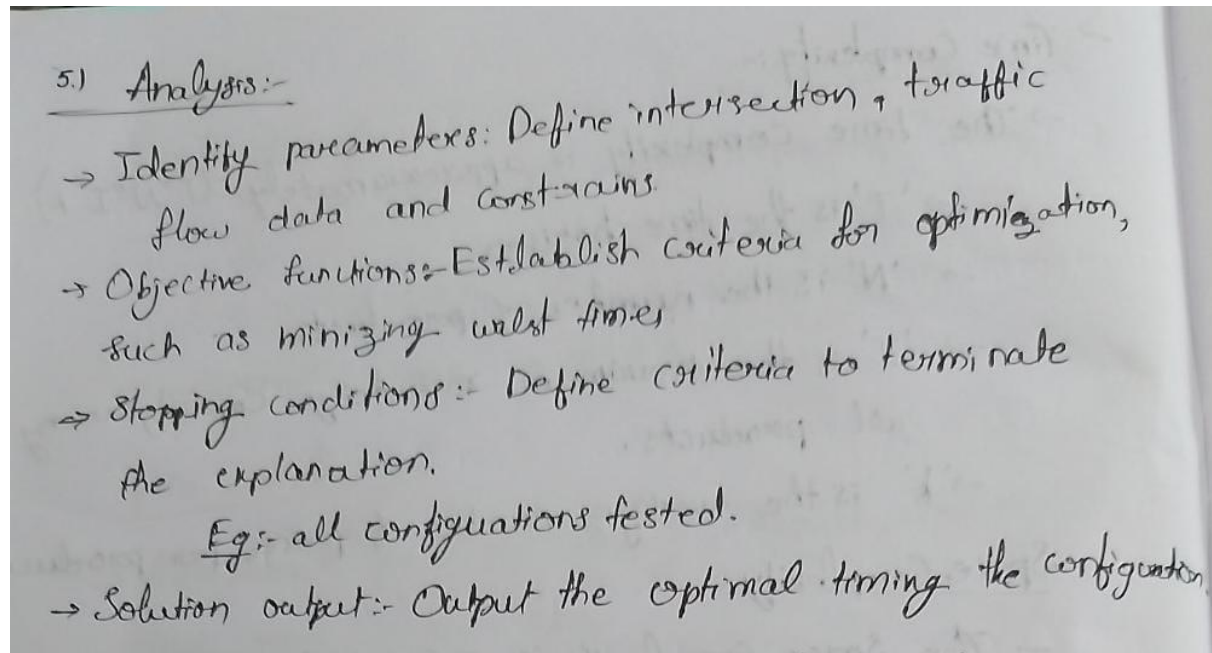 5.) Analysis:-
→ Identify parameters: Define intersection, traffic
flow data and constrains.
→ Objective functions:- Estlablish criteria for optimization,
such as minizing waist times
⇒ Stopping conditions:- Define criteria to terminate
the explanation.
Eg:- all configuations tested.
→ Solution output:- Output the optimal timing the configuration.